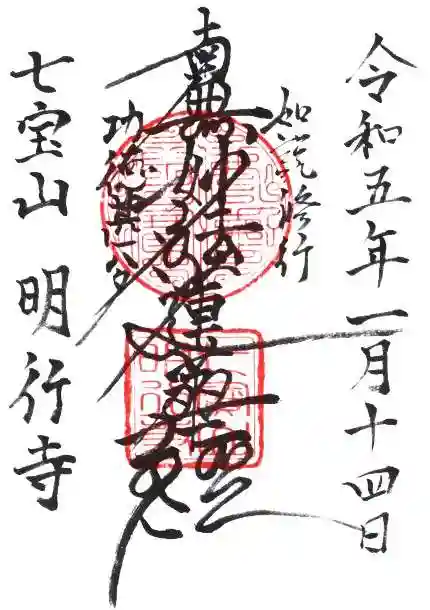 令和五年一月十四日
如説修行
南無妙法蓮華経
功徳甚多
七宝山 明行寺